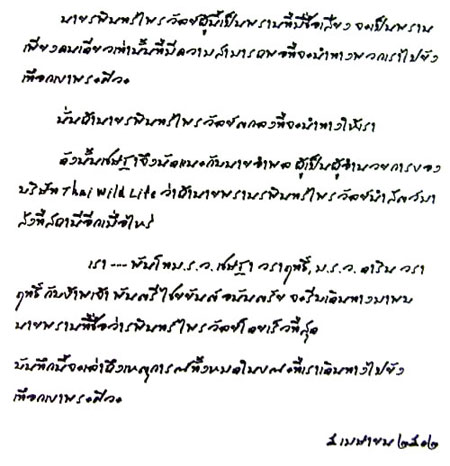 นายรพินทร์ ไพรวัลย์ผู้นี้เป็นพรานที่มีชื่อเสียง จะเป็นพราน
เพียงคนเดียวเท่านั้นที่มีความสามารถพอที่จะนำทางพวกเราไปยัง
เทือกเขาพระศิวะ
นั่นถ้านายรพินทร์ ไพรวัลย์ตกลงที่จะนำทางให้เรา
ดังนั้นเชษฐาจึงนัดแนะกับนายอำพล ผู้เป็นผู้อำนวยการของ
บริษัท Thai Wild Life ว่าถ้านายพรานรพินทร์ ไพรวัลย์นำสัตว์มา
ส่งที่สถานีอีกเมื่อไหร่
เรา --- พันโท ม.ร.ว. เชษฐา วราฤทธิ์, ม.ร.ว. ดาริน วรา
ฤทธิ์ กับข้าพเจ้า พันตรี ไชยยันต์ อนันตรัย จะรีบเดินทางมาพบ
นายพรานที่ชื่อว่ารพินทร์ ไพรวัลย์โดยเร็วที่สุด
บันทึกนี้จะเล่าถึงเหตุการณ์ทั้งหมดในขณะที่เราเดินทางไปยัง
เทือกเขาพระศิวะ
เมษายน ๒๕๐๒